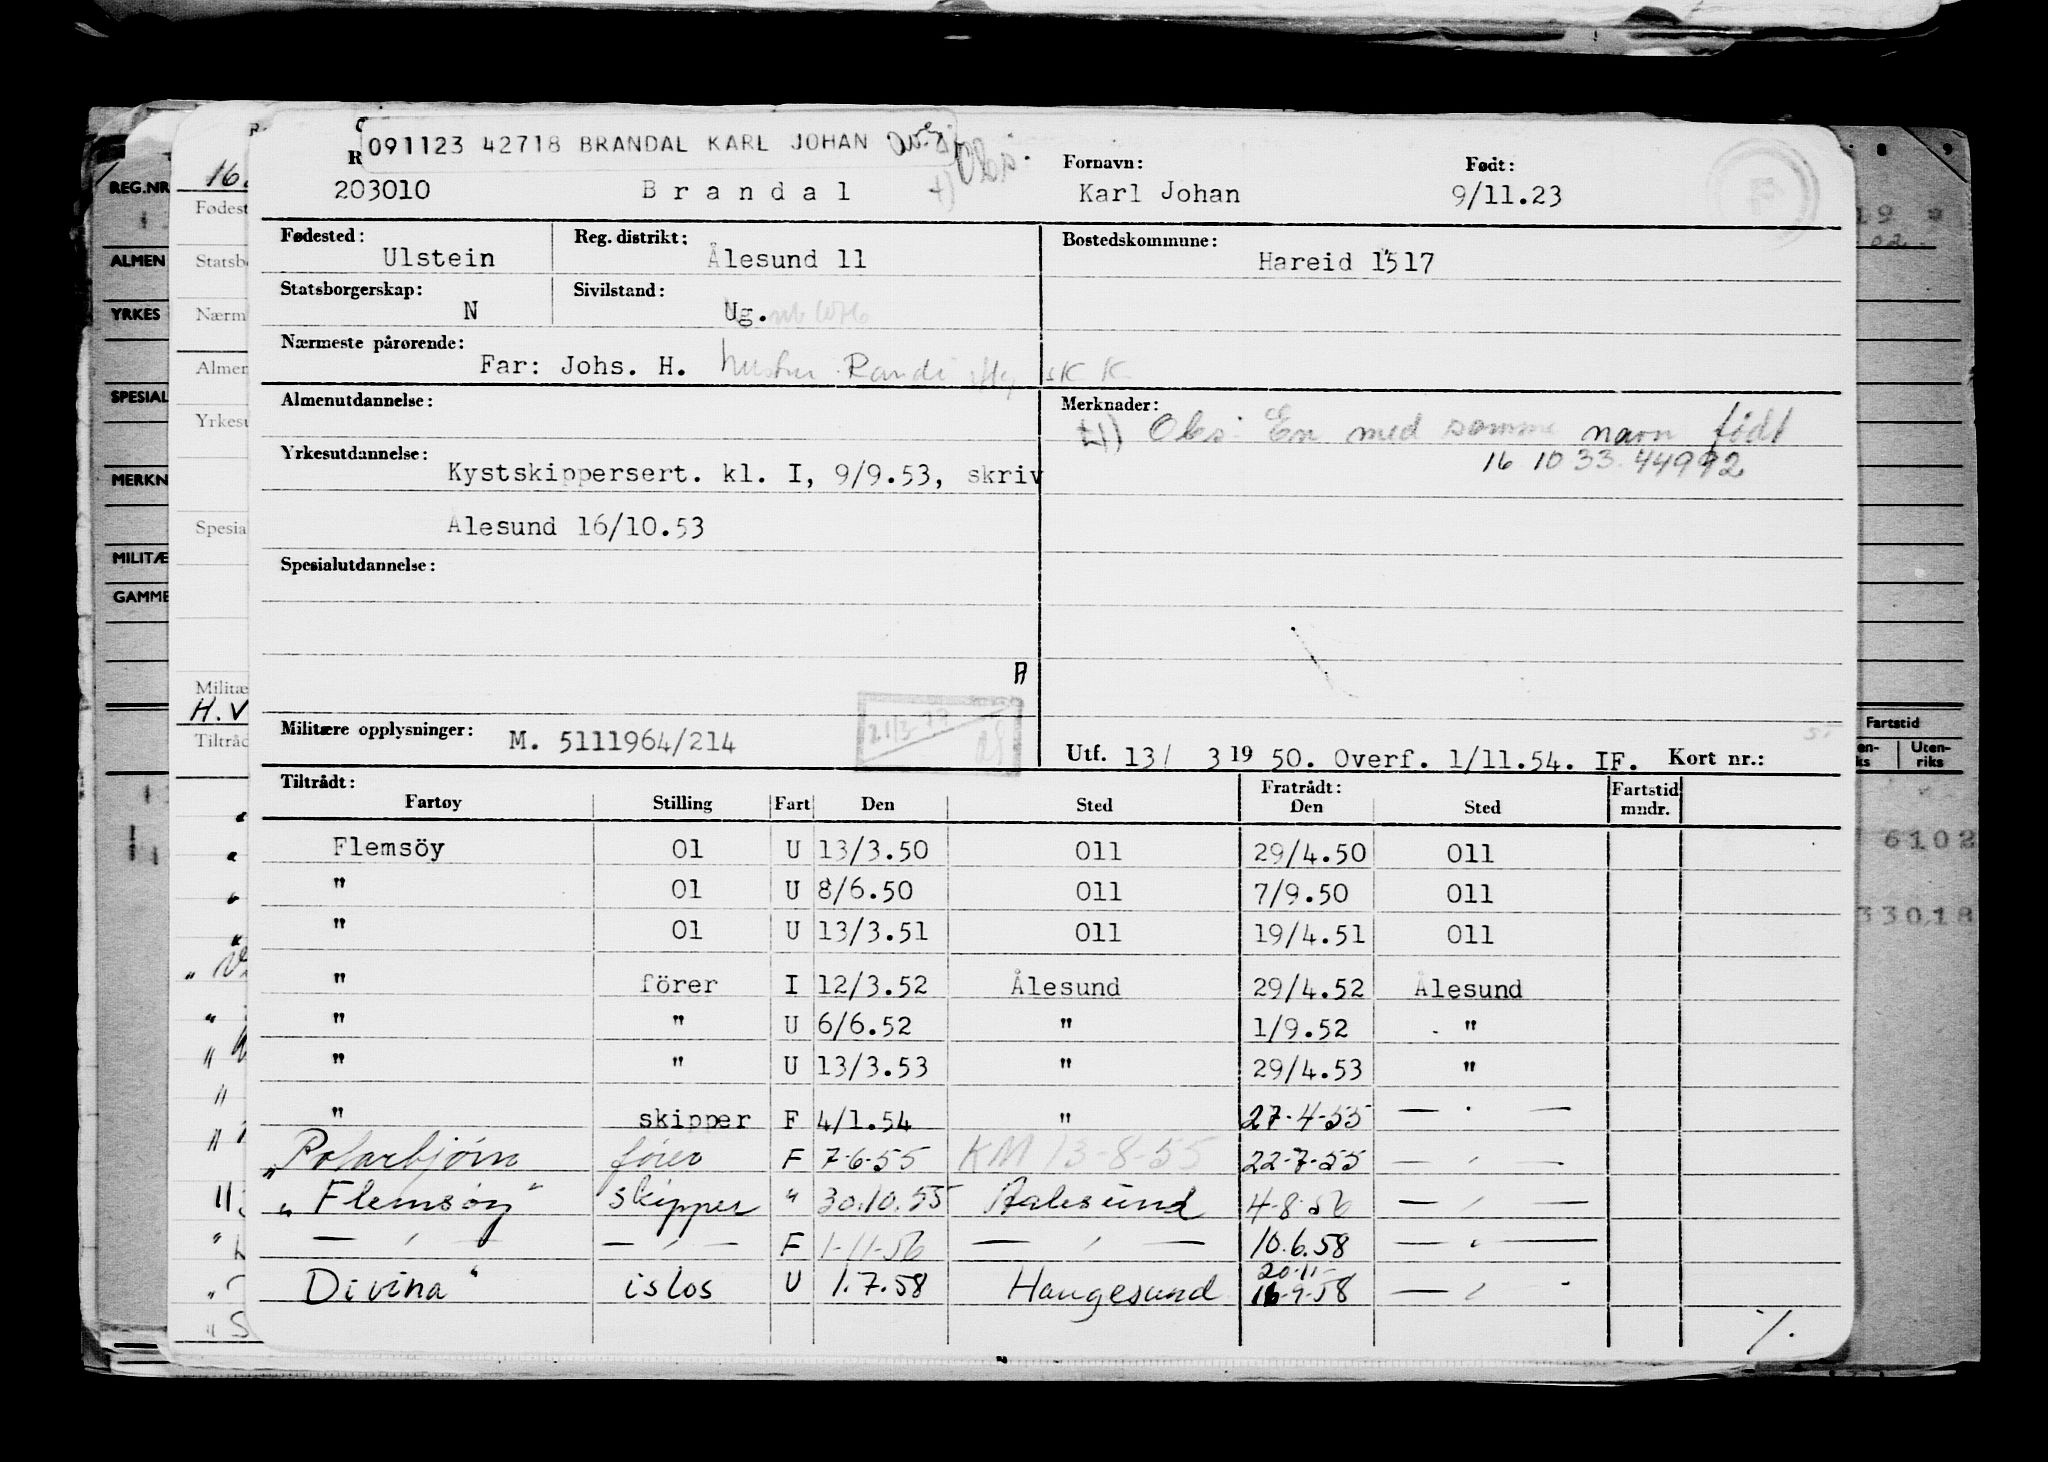 091123 42718 BRANDAL KARL JOHAN
Obs.
Fornavn: Født:
203010 Brandal +) Karl Johan 9/11.23
Fødested: Reg. distrikt: Bostedskommune:
Ulstein Ålesund 11 Hareid 1517
Statsborgerskap: Sivilstand:
N Ug.
Nærmeste pårørende:
Far: Johs. H. hustru Randi
Almenutdannelse: Merknader:
+) Obs: En med samme navn født
16 10 33. 44992
Yrkesutdannelse:
Kystskippersert. kl. I, 9/9.53, skriv
Ålesund 16/10.53
Spesialutdannelse:
A
Militære opplysninger: M. 5111964/214
Utf. 13/ 3 19 50. Overf. 1/11.54. IF. Kort nr.:
Tiltrådt: Fratrådt: Fartstid
Fartøy Stilling Fart Den Sted Den Sted mndr.
Flemsöy 01 U 13/3.50 011 29/4.50 011
" 01 U 8/6.50 011 7/9.50 011
" 01 U 13/3.51 011 19/4.51 011
" förer I 12/3.52 Ålesund 29/4.52 Ålesund
" " U 6/6.52 " 1/9.52 "
" " U 13/3.53 " 29/4.53 "
" skipper F 4/1.54 " 27-4-55 — " —
"Polarbjørn fører F 7-6-55 KM 13-8-55 22-7-55 — " —
"Flemsøy" skipper " 30.10.55 Aalesund 4-8-56 — " —
— " — — " — F 1-11-56 — " — 10.6.58 — " —
Divina" islos U 1.7.58 Haugesund 20-11- 16-9-58 — " -
REG.NR
ALMEN
YRKES
SPESIAL
MERKN
MILITÆ
GAMME
16.
Fødest
Statsb
Nærm
Almen
Yrkesu
Spesia
Militæ
H.V
Tiltråd
8 9
19
02
Fartstid
Uten-
riks
6102
33018